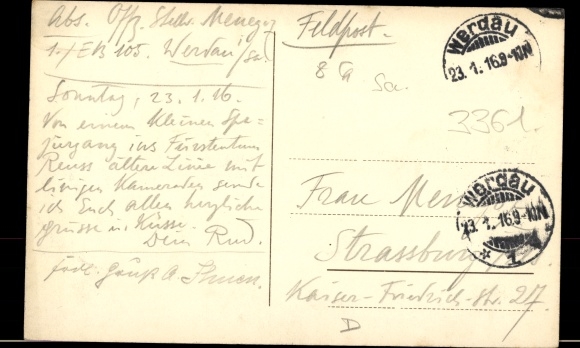 Abs. Offz. Stellv. Menegoz
1./EB 105. Werdau/Sa.
Sonntag, 23.1.16.
Von einem kleinen Spa=
ziergang ins Fürstentum
Reuss ältere Linie mit
einigen Kameraden sende
ich Euch allen herzliche
grüsse u. Küsse.
Dein Rud.
Feldpost.
8 a
Sa.
3361.
Werdau
23.1.16.9-10V
Frau Menegoz
Strassburg
Kaiser-Friedrich-Str. 27
D
Werdau
23.1.16.9-10V
* 1